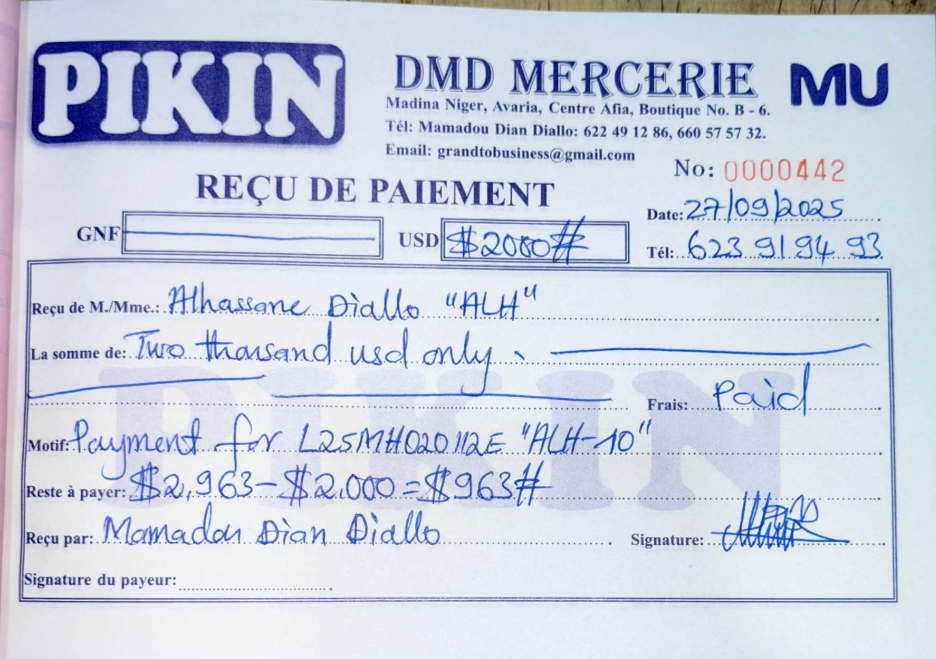 PIKIN
DMD MERCERIE
MU
Madina Niger, Avaria, Centre Afia, Boutique No. B - 6.
Tél: Mamadou Dian Diallo: 622 49 12 86, 660 57 57 32.
Email: grandtobusiness@gmail.com
No: 0000442
REÇU DE PAIEMENT
Date: 27/09/2025
GNF
USD $2000#
Tél: 623 91 94 93
Reçu de M./Mme.: Alhassane Diallo "ALH"
La somme de: Two thousand usd only
Frais: Paid
Motif: Payment for L25MH020112E "ALH-10"
Reste à payer: $2,963-$2,000=$963#
Reçu par: Mamadou Dian Diallo
Signature:
Signature du payeur:
PIKIN